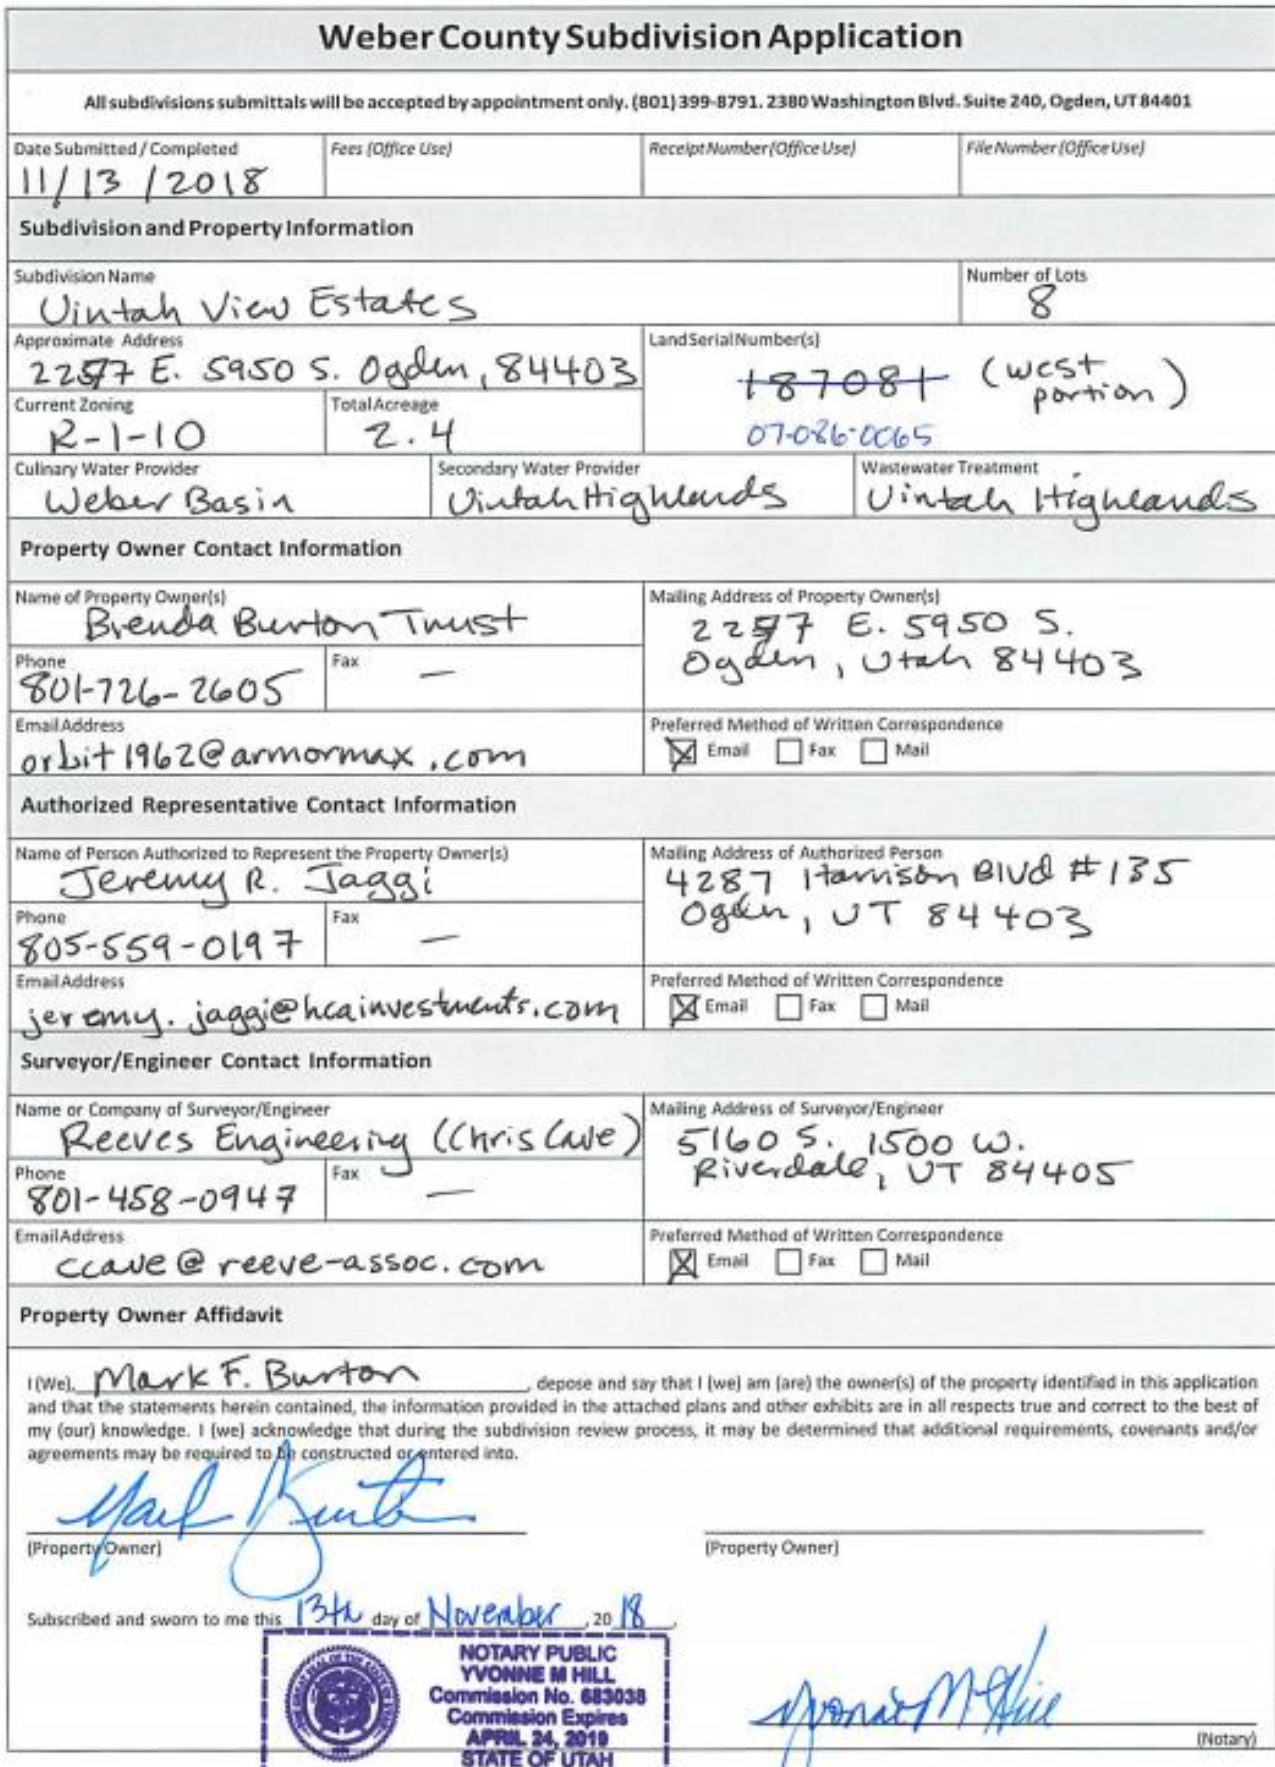 Weber County Subdivision Application
All subdivisions submittals will be accepted by appointment only. (801) 399-8791. 2380 Washington Blvd. Suite 240, Ogden, UT 84401
Date Submitted / Completed
11/13/2018
Fees (Office Use)
Receipt Number (Office Use)
File Number (Office Use)
Subdivision and Property Information
Subdivision Name
Uintah View Estates
Number of Lots
8
Approximate Address
2257 E. 5950 S. Ogden, 84403
Land Serial Number(s)
187081 (west
portion)
07-086-0065
Current Zoning
R-1-10
Total Acreage
2.4
Culinary Water Provider
Weber Basin
Secondary Water Provider
Uintah Highlands
Wastewater Treatment
Uintah Highlands
Property Owner Contact Information
Name of Property Owner(s)
Brenda Burton Trust
Mailing Address of Property Owner(s)
2257 E. 5950 S.
Ogden, Utah 84403
Phone
801-726-2605
Fax
—
Email Address
orbit1962@armormax.com
Preferred Method of Written Correspondence
Email Fax Mail
Authorized Representative Contact Information
Name of Person Authorized to Represent the Property Owner(s)
Jeremy R. Jaggi
Mailing Address of Authorized Person
4287 Harrison Blvd #135
Ogden, UT 84403
Phone
805-559-0197
Fax
—
Email Address
jeremy.jaggi@hcainvestments.com
Preferred Method of Written Correspondence
Email Fax Mail
Surveyor/Engineer Contact Information
Name or Company of Surveyor/Engineer
Reeves Engineering (Chris Cave)
Mailing Address of Surveyor/Engineer
5160 S. 1500 W.
Riverdale, UT 84405
Phone
801-458-0947
Fax
—
Email Address
ccave@reeve-assoc.com
Preferred Method of Written Correspondence
Email Fax Mail
Property Owner Affidavit
I (We), Mark F. Burton, depose and say that I (we) am (are) the owner(s) of the property identified in this application
and that the statements herein contained, the information provided in the attached plans and other exhibits are in all respects true and correct to the best of
my (our) knowledge. I (we) acknowledge that during the subdivision review process, it may be determined that additional requirements, covenants and/or
agreements may be required to be constructed or entered into.
Mark Burton
(Property Owner)
(Property Owner)
Subscribed and sworn to me this 13th day of November, 20 18,
NOTARY PUBLIC
YVONNE M HILL
Commission No. 683038
Commission Expires
APRIL 24, 2019
STATE OF UTAH
Yvonne M Hill
(Notary)